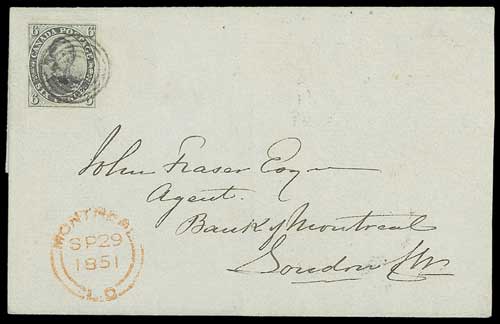 6 CANADA POSTAGE 6
SIX PENCE
6 6
John Fraser Esq
Agent.
Bank of Montreal
London
MONTREAL
SP 29
1851
L.C